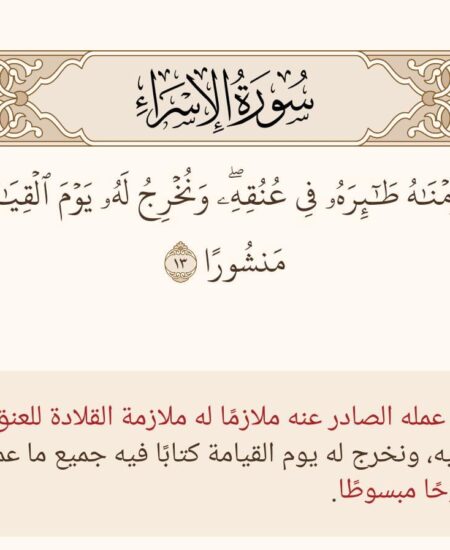 سُورَةُ الإِسْرَاءِ
طَـٰٓئِرَهُۥ فِى عُنُقِهِۦۖ وَنُخْرِجُ لَهُۥ يَوْمَ
مَنشُورًا ١٣
عمله الصادر عنه ملازمًا له ملازمة القلادة للعنق
ونخرج له يوم القيامة كتابًا فيه جميع ما
مبسوطًا.